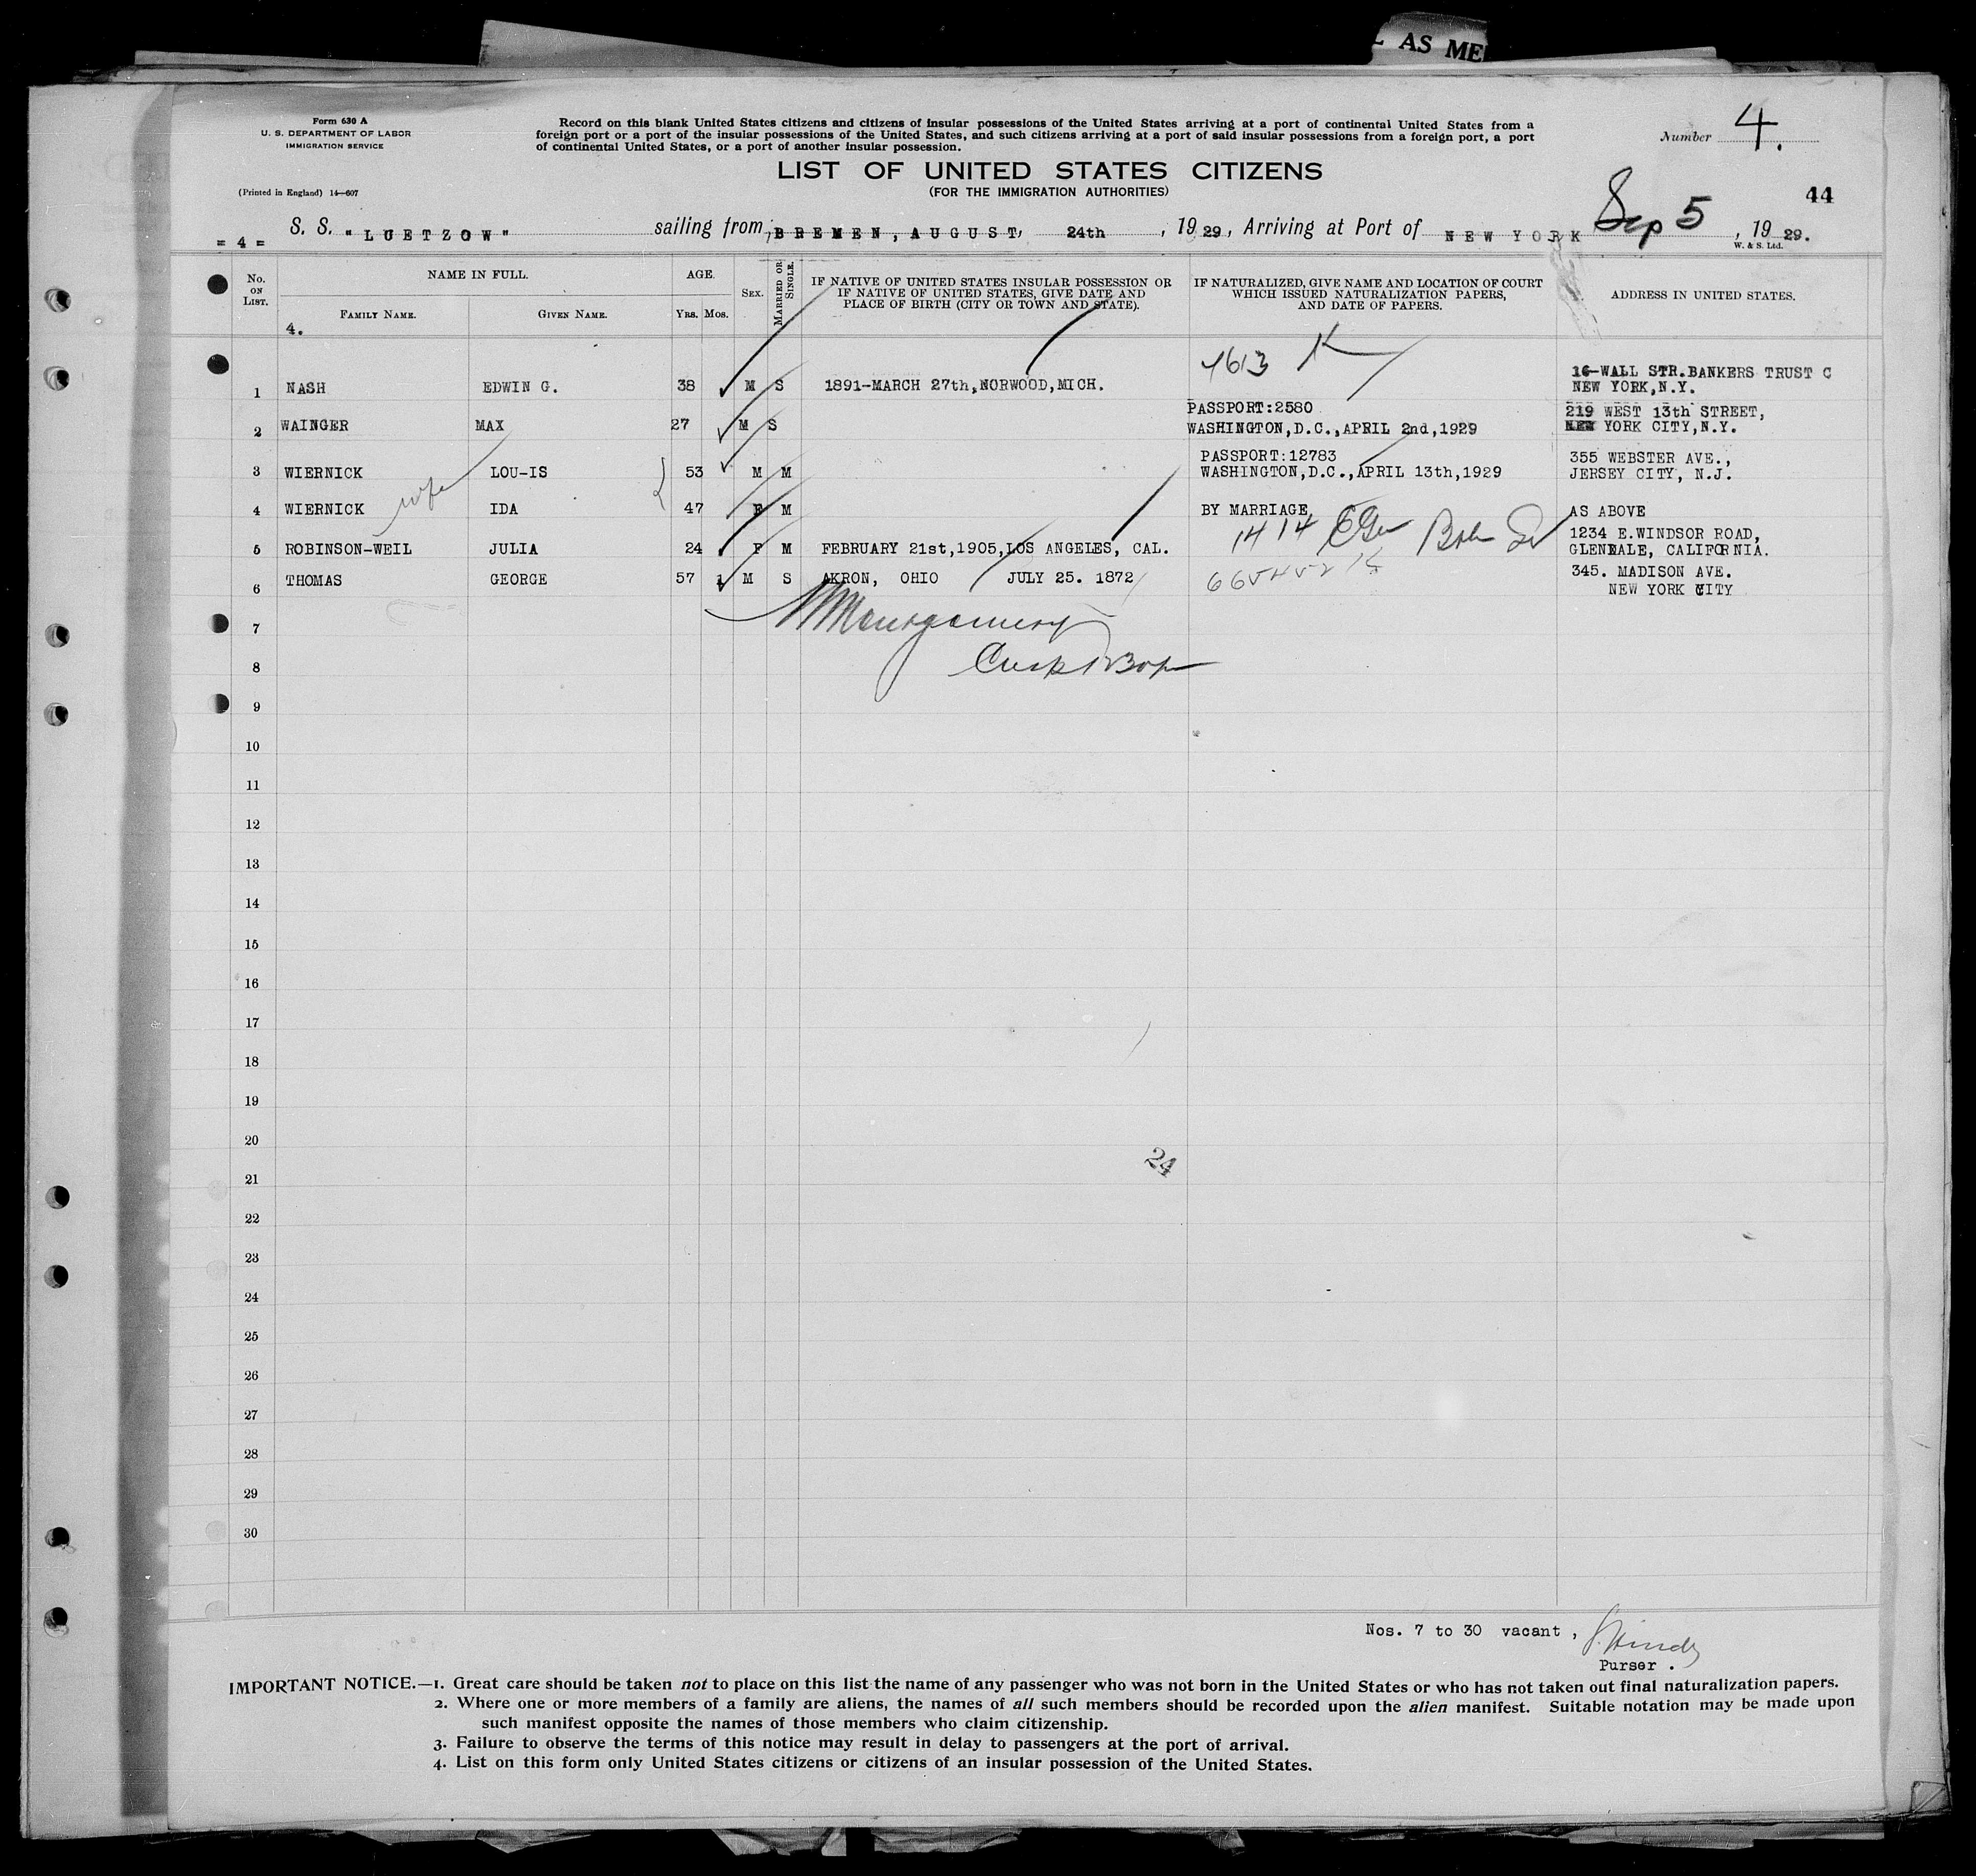 L AS ME
Form 630 A
U. S. DEPARTMENT OF LABOR
IMMIGRATION SERVICE
(Printed in England) 14—607
Record on this blank United States citizens and citizens of insular possessions of the United States arriving at a port of continental United States from a
foreign port or a port of the insular possessions of the United States, and such citizens arriving at a port of said insular possessions from a foreign port, a port
of continental United States, or a port of another insular possession.
Number 4.
LIST OF UNITED STATES CITIZENS
(FOR THE IMMIGRATION AUTHORITIES)
44
= 4 = S. S. "LUETZOW" sailing from BREMEN, AUGUST, 24th, 1929, Arriving at Port of NEW YORK Sep 5, 1929.
W. & S. Ltd.
No. ON LIST.
NAME IN FULL.
FAMILY NAME.
GIVEN NAME.
4.
AGE.
YRS. MOS.
SEX.
MARRIED OR SINGLE.
IF NATIVE OF UNITED STATES INSULAR POSSESSION OR
IF NATIVE OF UNITED STATES, GIVE DATE AND
PLACE OF BIRTH (CITY OR TOWN AND STATE).
IF NATURALIZED, GIVE NAME AND LOCATION OF COURT
WHICH ISSUED NATURALIZATION PAPERS,
AND DATE OF PAPERS.
ADDRESS IN UNITED STATES.
4613 K
16-WALL STR.BANKERS TRUST C
1 NASH EDWIN G. 38 M S 1891-MARCH 27th,NORWOOD,MICH. NEW YORK,N.Y.
PASSPORT:2580 219 WEST 13th STREET,
2 WAINGER MAX 27 M S WASHINGTON,D.C.,APRIL 2nd,1929 NEW YORK CITY,N.Y.
PASSPORT:12783 355 WEBSTER AVE.,
3 WIERNICK LOU-IS 53 M M WASHINGTON,D.C.,APRIL 13th,1929 JERSEY CITY, N.J.
wife
4 WIERNICK IDA 47 F M BY MARRIAGE AS ABOVE
1414
1234 E.WINDSOR ROAD,
5 ROBINSON-WEIL JULIA 24 F M FEBRUARY 21st,1905,LOS ANGELES, CAL. GLENDALE, CALIFORNIA.
6 THOMAS GEORGE 57 1 M S AKRON, OHIO JULY 25. 1872 345. MADISON AVE.
NEW YORK CITY
7
Montgomery
8
9
10
11
12
13
14
15
16
17
18
19
20
24
21
22
23
24
25
26
27
28
29
30
Nos. 7 to 30 vacant ,
Purser .
IMPORTANT NOTICE.—1. Great care should be taken not to place on this list the name of any passenger who was not born in the United States or who has not taken out final naturalization papers.
2. Where one or more members of a family are aliens, the names of all such members should be recorded upon the alien manifest. Suitable notation may be made upon
such manifest opposite the names of those members who claim citizenship.
3. Failure to observe the terms of this notice may result in delay to passengers at the port of arrival.
4. List on this form only United States citizens or citizens of an insular possession of the United States.